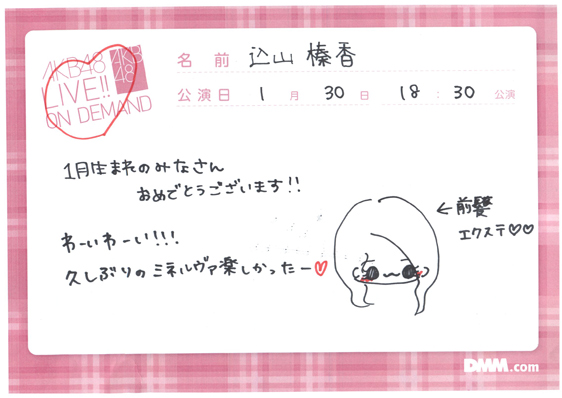 AKB48
LIVE!!
ON DEMAND
AKB
48
名前 込山榛香
公演日 1月30日 18:30公演
1月生まれのみなさん
おめでとうございます!!
わーいわーい!!!
久しぶりのミネルヴァ楽しかったー♡
←前髪
エクステ♡♡
DMM.com